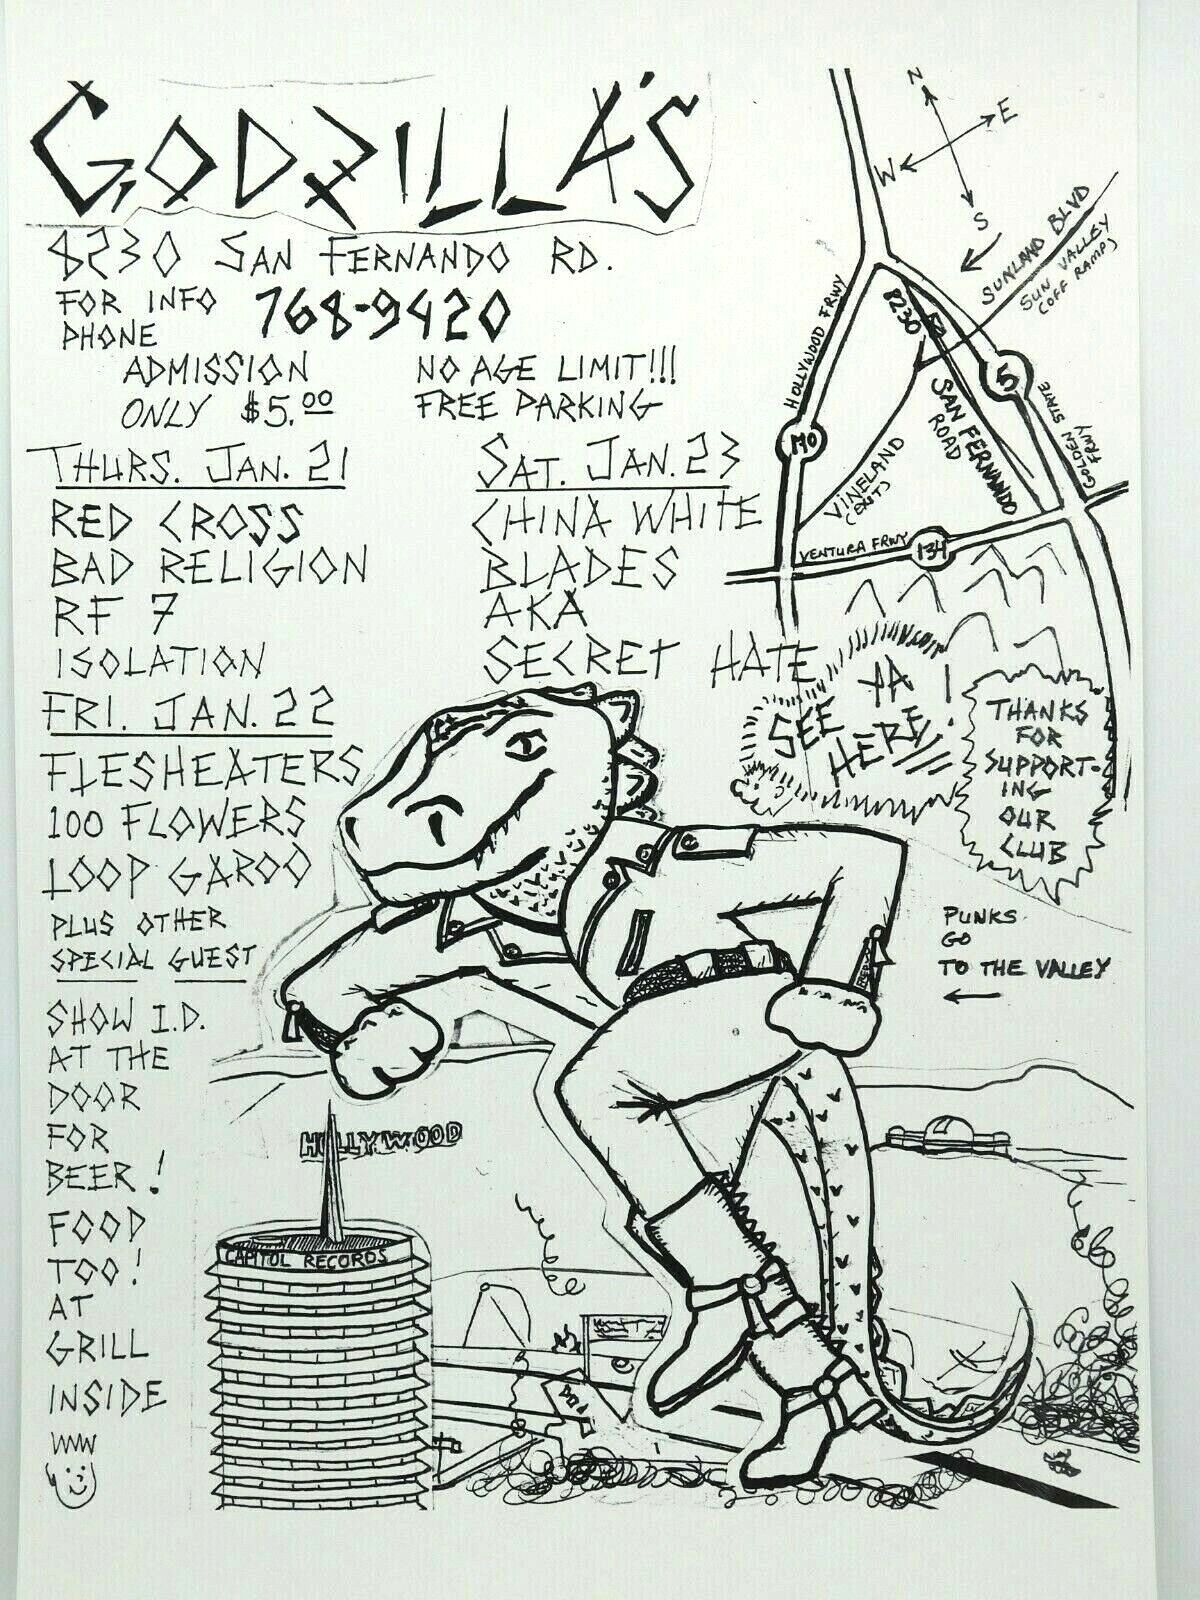 GODZILLA'S
8230 SAN FERNANDO RD.
FOR INFO
PHONE
768-9420
ADMISSION
ONLY $5.00
NO AGE LIMIT!!!
FREE PARKING
THURS. JAN. 21
RED CROSS
BAD RELIGION
RF 7
ISOLATION
FRI. JAN. 22
FLESHEATERS
100 FLOWERS
LOOP GAROO
PLUS OTHER
SPECIAL GUEST
SAT. JAN. 23
CHINA WHITE
BLADES
AKA
SECRET HATE
SHOW I.D.
AT THE
DOOR
FOR
BEER!
FOOD
TOO!
AT
GRILL
INSIDE
N
E
W
S
SUNLAND BLVD
SUN VALLEY
(OFF RAMP)
HOLLYWOOD FRWY
8230
RD
5
SAN FERNANDO
ROAD
GOLDEN STATE
FRWY
170
VINELAND
(EXIT)
VENTURA FRWY
134
SEE YA
HERE!
THANKS
FOR
SUPPORT-
ING
OUR
CLUB
PUNKS
GO
TO THE VALLEY
HOLLYWOOD
CAPITOL RECORDS